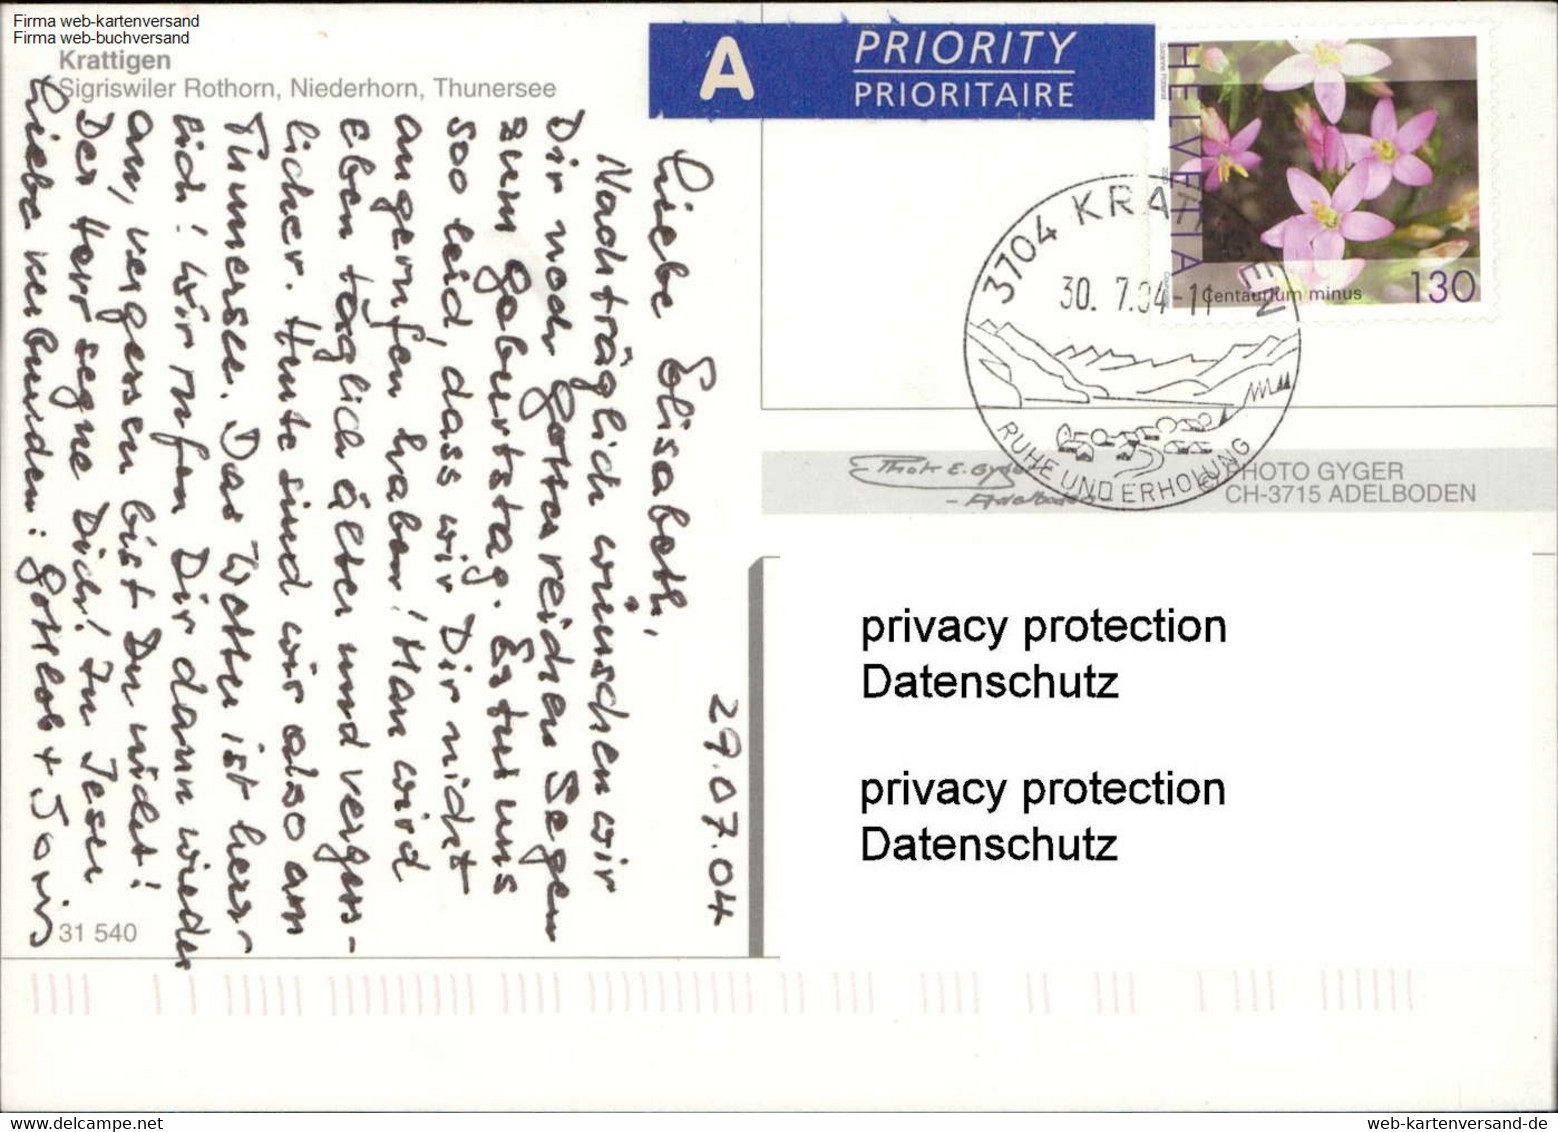 Firma web-kartenversand
Firma web-buchversand
Krattigen
Sigriswiler Rothorn, Niederhorn, Thunersee
A
PRIORITY
PRIORITAIRE
HELVETIA
Centaurium minus
130
3704 KRATTIGEN
30. 7.04-11
RUHE UND ERHOLUNG
Photo E. Gyger
- Adelboden
© PHOTO GYGER
CH-3715 ADELBODEN
29.07.04
Liebe Elisabeth,
Nachträglich wünschen wir
Dir noch Gottes reichen Segen
zum Geburtstag. Es tut uns
soo leid, dass wir Dir nicht
angerufen haben! Man wird
eben täglich älter und verges-
licher. Heute sind wir also am
Thunersee. Das Wetter ist herr-
lich! Wir rufen Dir dann wieder
an, vergessen bist Du nicht!
Der Herr segne Dich! In Jesu
Liebe verbunden: Gottlob +
31 540
privacy protection
Datenschutz
privacy protection
Datenschutz
web-kartenversand-de
www.delcampe.net